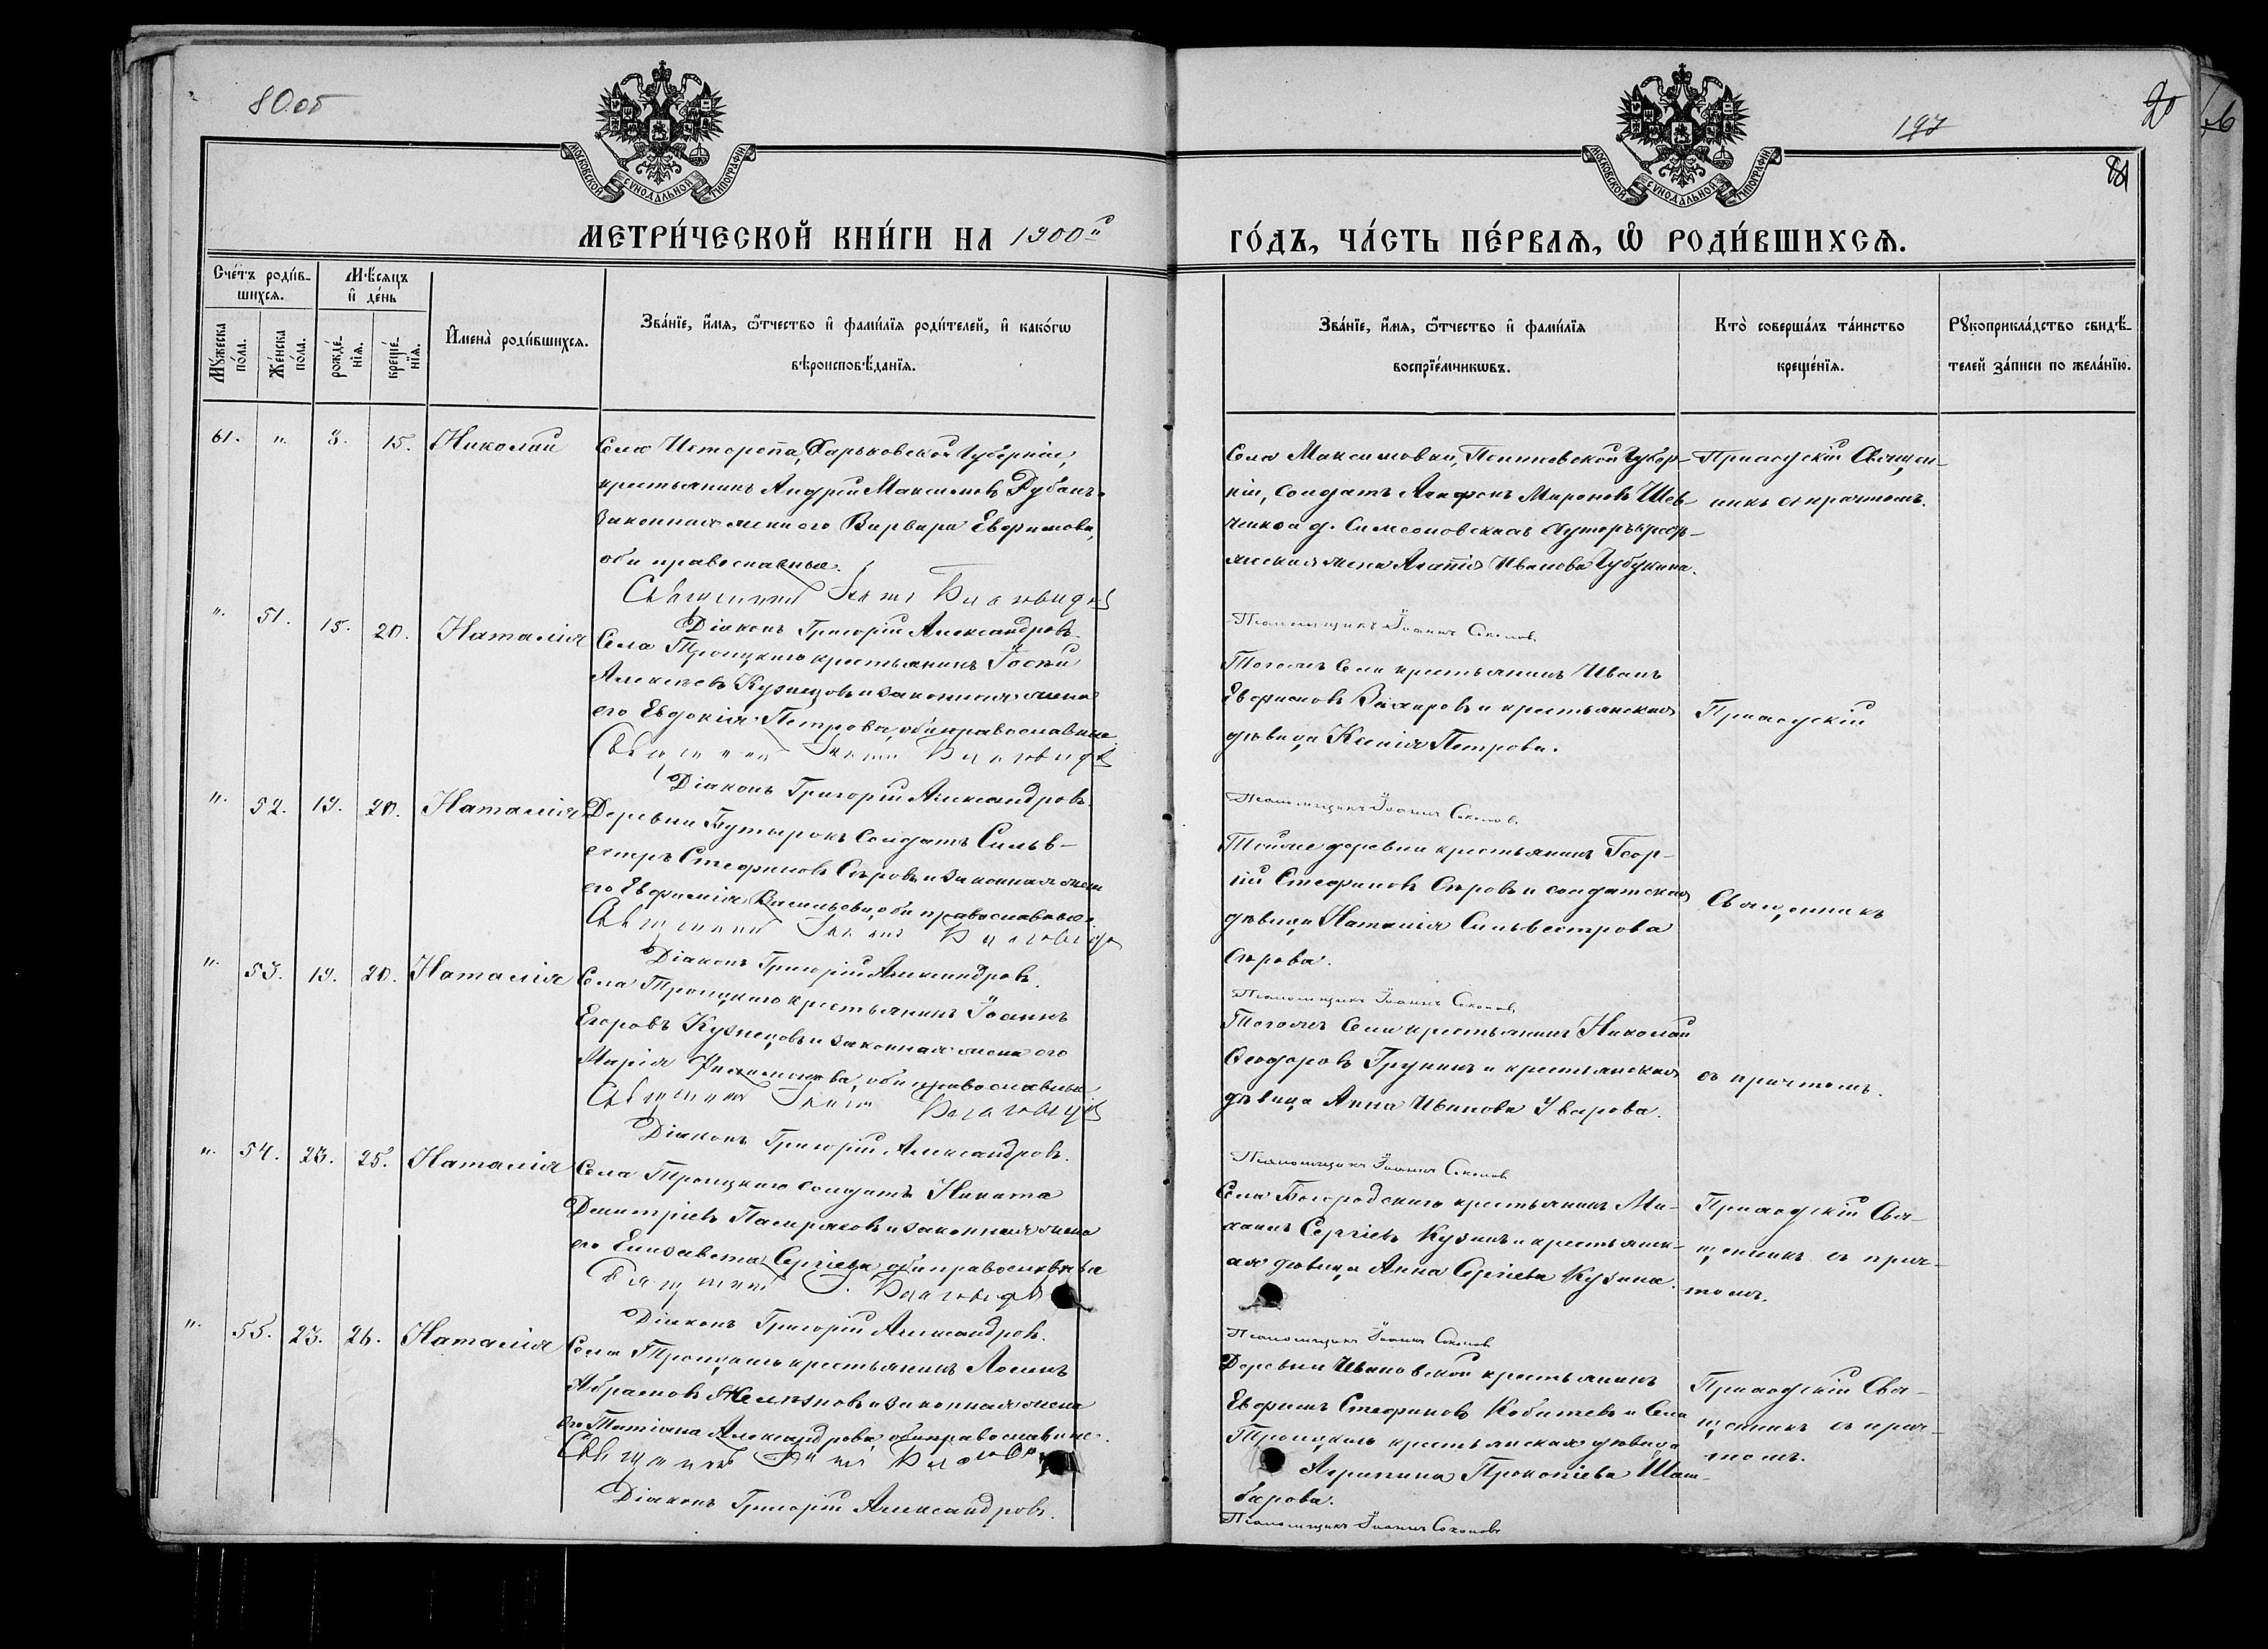 80 об
197
81
МОСКОВСКОЙ СѴНОДАЛЬНОЙ ТИПОГРАФІИ
МОСКОВСКОЙ СѴНОДАЛЬНОЙ ТИПОГРАФІИ
МЕТРИ́ЧЕСКОЙ КНИ́ГИ НА 1900й
ГО́ДЪ, ЧА́СТЬ ПЕ́РВАѦ, Ѽ РОДИ́ВШИХСѦ.
Сче́тъ роди́в-
шихсѧ.
Мѣ́сѧцъ
и҆ де́нь
Мꙋ́жеска по́ла.
Же́нска по́ла.
рожде́-нїѧ.
креще́-нїѧ.
И҆мена̀ роди́вшихсѧ.
Зва́нїе, и҆́мѧ, ѻ҆́тчество и҆ фами́лїѧ роди́телей, и҆ како́гѡ
вѣроисповѣ́данїѧ.
Зва́нїе, и҆́мѧ, ѻ҆́тчество и҆ фами́лїѧ
воспрїе́мникѡвъ.
Кто̀ соверша́лъ та́инство
креще́нїѧ.
Рꙋкоприкла́дство свидѣ́-
телей за́писи по жела́нїю.
61. " 3. 15. Николай
Села Истороппа, Харьковской Губерніи,
крестьянинъ Андрей Максимовъ Рубанъ
законная жена его Варвара Евфимова,
оба православные.
Священникъ Благовидовъ
Діаконъ Григорій Александровъ.
Села Максимовки, Полтавской Губер-
ніи, солдатъ Агафонъ Мироновъ Шев-
ченко и д. Симеоновскихъ Хуторъ
жена Агапія Иванова Губукина.
Псаломщикъ Іоаннъ Соколовъ
Приходскій Священ-
никъ съ причтомъ.
" 51. 15. 20. Наталія
Села Троицкаго крестьянинъ Іосифъ
Алексѣевъ Кузнецовъ и законная жена
его Евдокія Петрова, оба православные
Священникъ Благовидовъ
Діаконъ Григорій Александровъ.
Тогоже Села крестьянинъ Иванъ
Евфимовъ Захаровъ и крестьянская
дѣвица Ксенія Петрова.
Псаломщикъ Іоаннъ Соколовъ
Приходскій
" 52. 19. 20. Наталія
Деревни Бутырокъ солдатъ Сильв-
естръ Стефановъ Сѣровъ и законная жена
его Евфимія Васильева, оба православные.
Священникъ Благовидовъ
Діаконъ Григорій Александровъ.
Тойже деревни крестьянинъ Геор-
гій Стефановъ Сѣровъ и солдатская
дѣвица Наталія Сильвестрова
Сѣрова.
Псаломщикъ Іоаннъ Соколовъ
Священникъ
" 53. 19. 20. Наталія
Села Троицкаго крестьянинъ Іоаннъ
Егоровъ Кузнецовъ и законная жена его
Марія Филимонова, оба православные
Священникъ Благовидовъ
Діаконъ Григорій Александровъ.
Тогоже Села крестьянинъ Николай
Ѳеодоровъ Грунинъ и крестьянская
дѣвица Анна Иванова Уварова.
Псаломщикъ Іоаннъ Соколовъ
съ причтомъ.
" 54. 23. 25. Наталія
Села Троицкаго солдатъ Никита
Димитріевъ и законная жена
его Елизавета Сергіева, оба православные
Священникъ Благовидовъ
Діаконъ Григорій Александровъ.
Села Богородскаго крестьянинъ Ми-
хаилъ Сергіевъ Кузинъ и крестьянск-
ая дѣвица Анна Сергіева Кузина.
Псаломщикъ Іоаннъ Соколовъ
Приходскій Свя-
щенникъ съ прич-
томъ.
" 55. 23. 26. Наталія
Села Троицкаго крестьянинъ Логинъ
Абрамовъ Желѣзновъ и законная жена
его Татіана Александрова, оба православные.
Священникъ
Діаконъ Григорій Александровъ.
Деревни Ивановской крестьянинъ
Евфимъ Стефановъ Кобитевъ и Села
Троицкаго крестьянская дѣвица
Агрипина Прокопіева Шам-
барова.
Псаломщикъ Іоаннъ Соколовъ
Приходскій Свя-
щенникъ съ прич-
томъ.